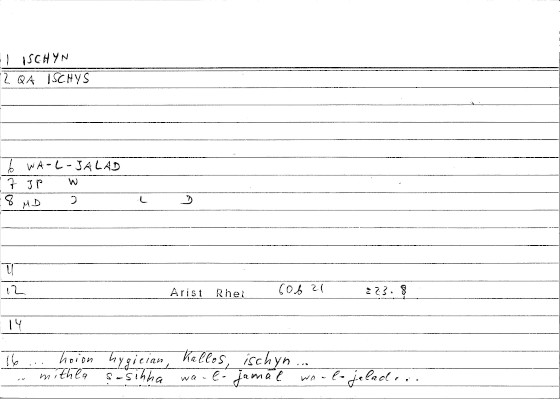 1 ISCHYN
2 QA ISCHYS
6 WA-L-JALAD
7 JP W
8 MD J L D
11
12 Arist Rhet 60b 21 223.8
14
16 ... hoion hygieian, kallos, ischyn ...
.. mithla ṣ-ṣiḥḥa wa-l-jamāl wa-l-jalad...